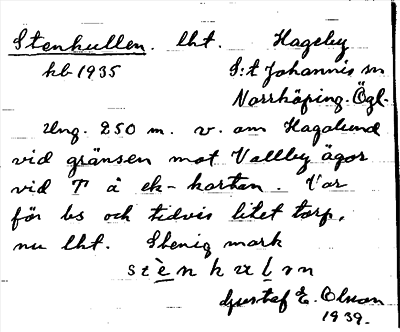 Stenkullen. lht. Hageby
kb 1935 S:t Johannis sn
Norrköping. Ögl.
Ung. 250 m. v. om Hagalund
vid gränsen mot Vallby ägor
vid T å ek-kartan. Var
för bs och tidvis litet torp,
nu lht. Stenig mark
Gustaf E. Olsson
1939.